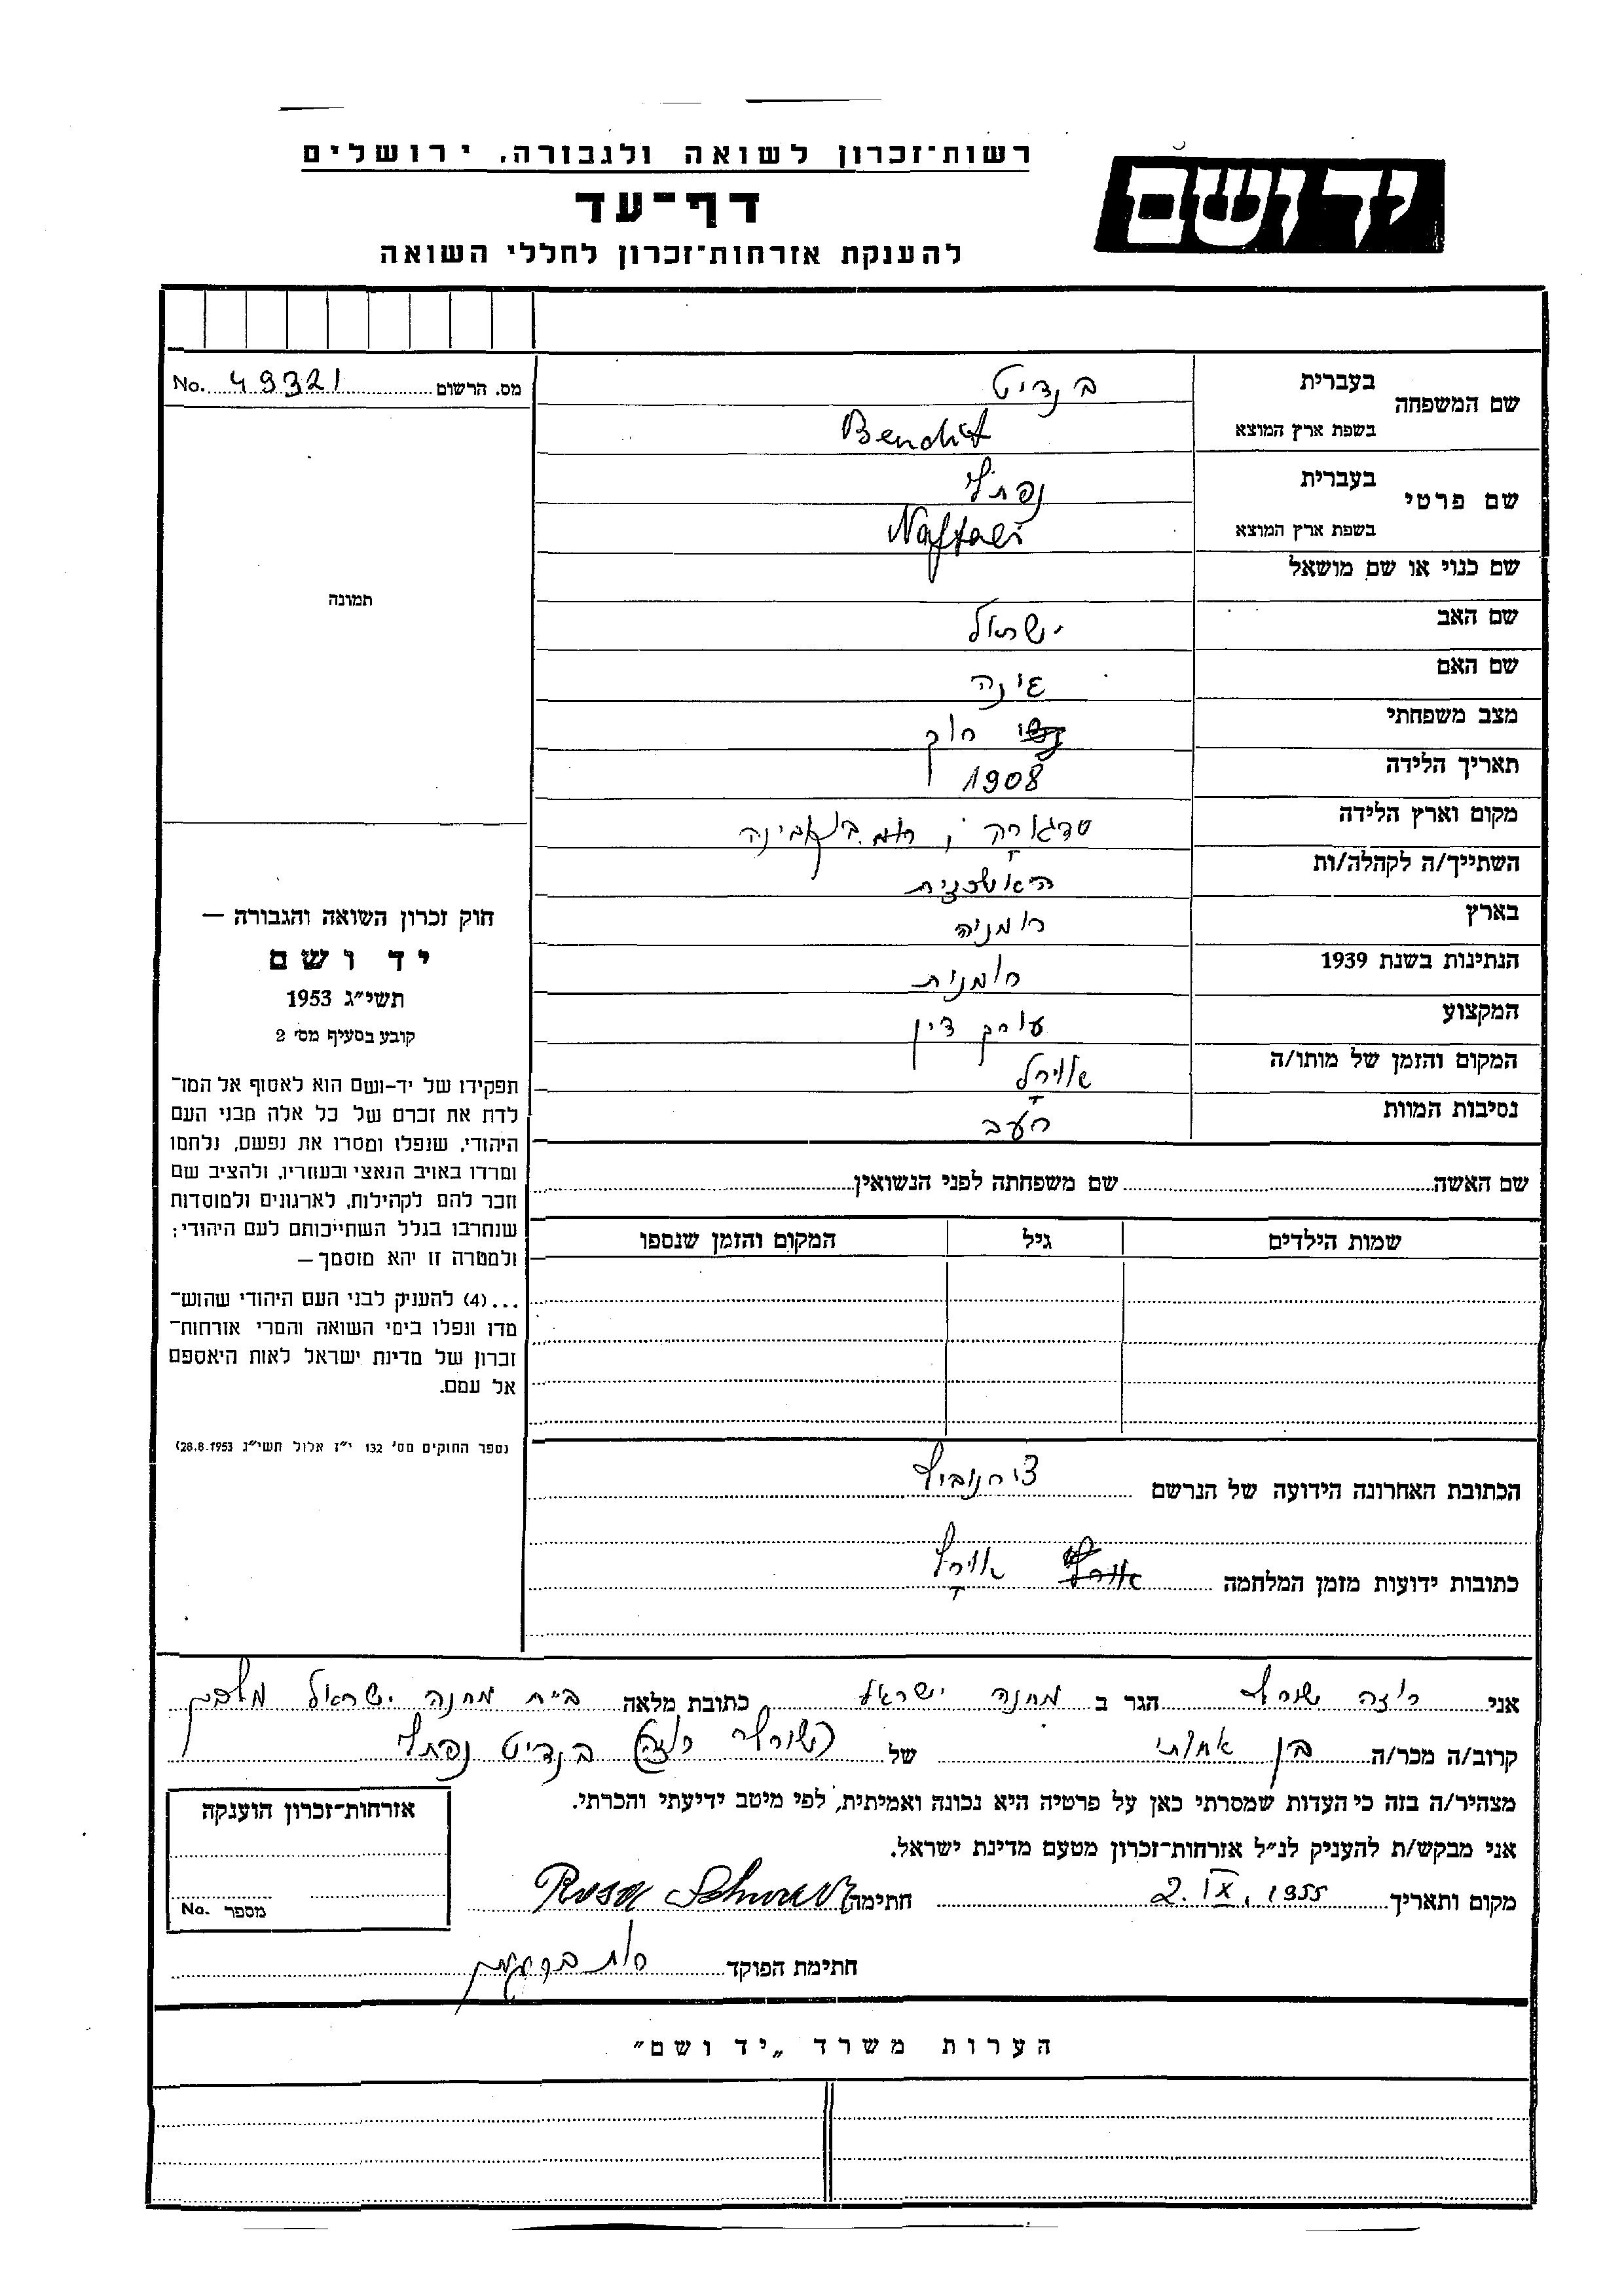 רשות־זכרון לשואה ולגבורה, ירושלים
יד ושם
דף־עד
להענקת אזרחות־זכרון לחללי השואה
מס. הרשום 49321 No.
שם המשפחה
בעברית בנדיט
בשפת ארץ המוצא Bendit
שם פרטי
בעברית נפתלי
בשפת ארץ המוצא Naftali
שם כנוי או שם מושאל
שם האב ישראל
שם האם
מצב משפחתי רוק
תאריך הלידה 1908
מקום וארץ הלידה
השתייך/ה לקהלה/ות האשכנזית
בארץ רומניה
הנתינות בשנת 1939 רומנית
המקצוע עורך דין
המקום והזמן של מותו/ה
נסיבות המוות רעב
תמונה
חוק זכרון השואה והגבורה —
יד ושם
תשי״ג 1953
קובע בסעיף מס׳ 2
תפקידו של יד-ושם הוא לאסוף אל המו־
לדת את זכרם של כל אלה מבני העם
היהודי, שנפלו ומסרו את נפשם, נלחמו
ומרדו באויב הנאצי ובעוזריו, ולהציב שם
וזכר להם לקהילות, לארגונים ולמוסדות
שנחרבו בגלל השתייכותם לעם היהודי;
ולמטרה זו יהא מוסמך —
...(4) להעניק לבני העם היהודי שהוש־
מדו ונפלו בימי השואה והמרי אזרחות־
זכרון של מדינת ישראל לאות היאספם
אל עמם.
(ספר החוקים מס׳ 132 י״ז אלול תשי״ג 28.8.1953)
שם האשה שם משפחתה לפני הנשואין
שמות הילדים גיל המקום והזמן שנספו
הכתובת האחרונה הידועה של הנרשם צירנוביץ
כתובות ידועות מזמן המלחמה
אני רוזה שוורץ הגר ב מחנה ישראל כתובת מלאה בי״ח מחנה ישראל מלבן
קרוב/ה מכר/ה בן אחותי של (שוורץ רוזה) בנדיט נפתלי
מצהיר/ה בזה כי העדות שמסרתי כאן על פרטיה היא נכונה ואמיתית, לפי מיטב ידיעתי והכרתי.
אני מבקש/ת להעניק לנ״ל אזרחות־זכרון מטעם מדינת ישראל.
מקום ותאריך 2.IX.1955 חתימה Rosa Schwarz
חתימת הפוקד רות
אזרחות־זכרון הוענקה
מספר No.
הערות משרד „יד ושם”